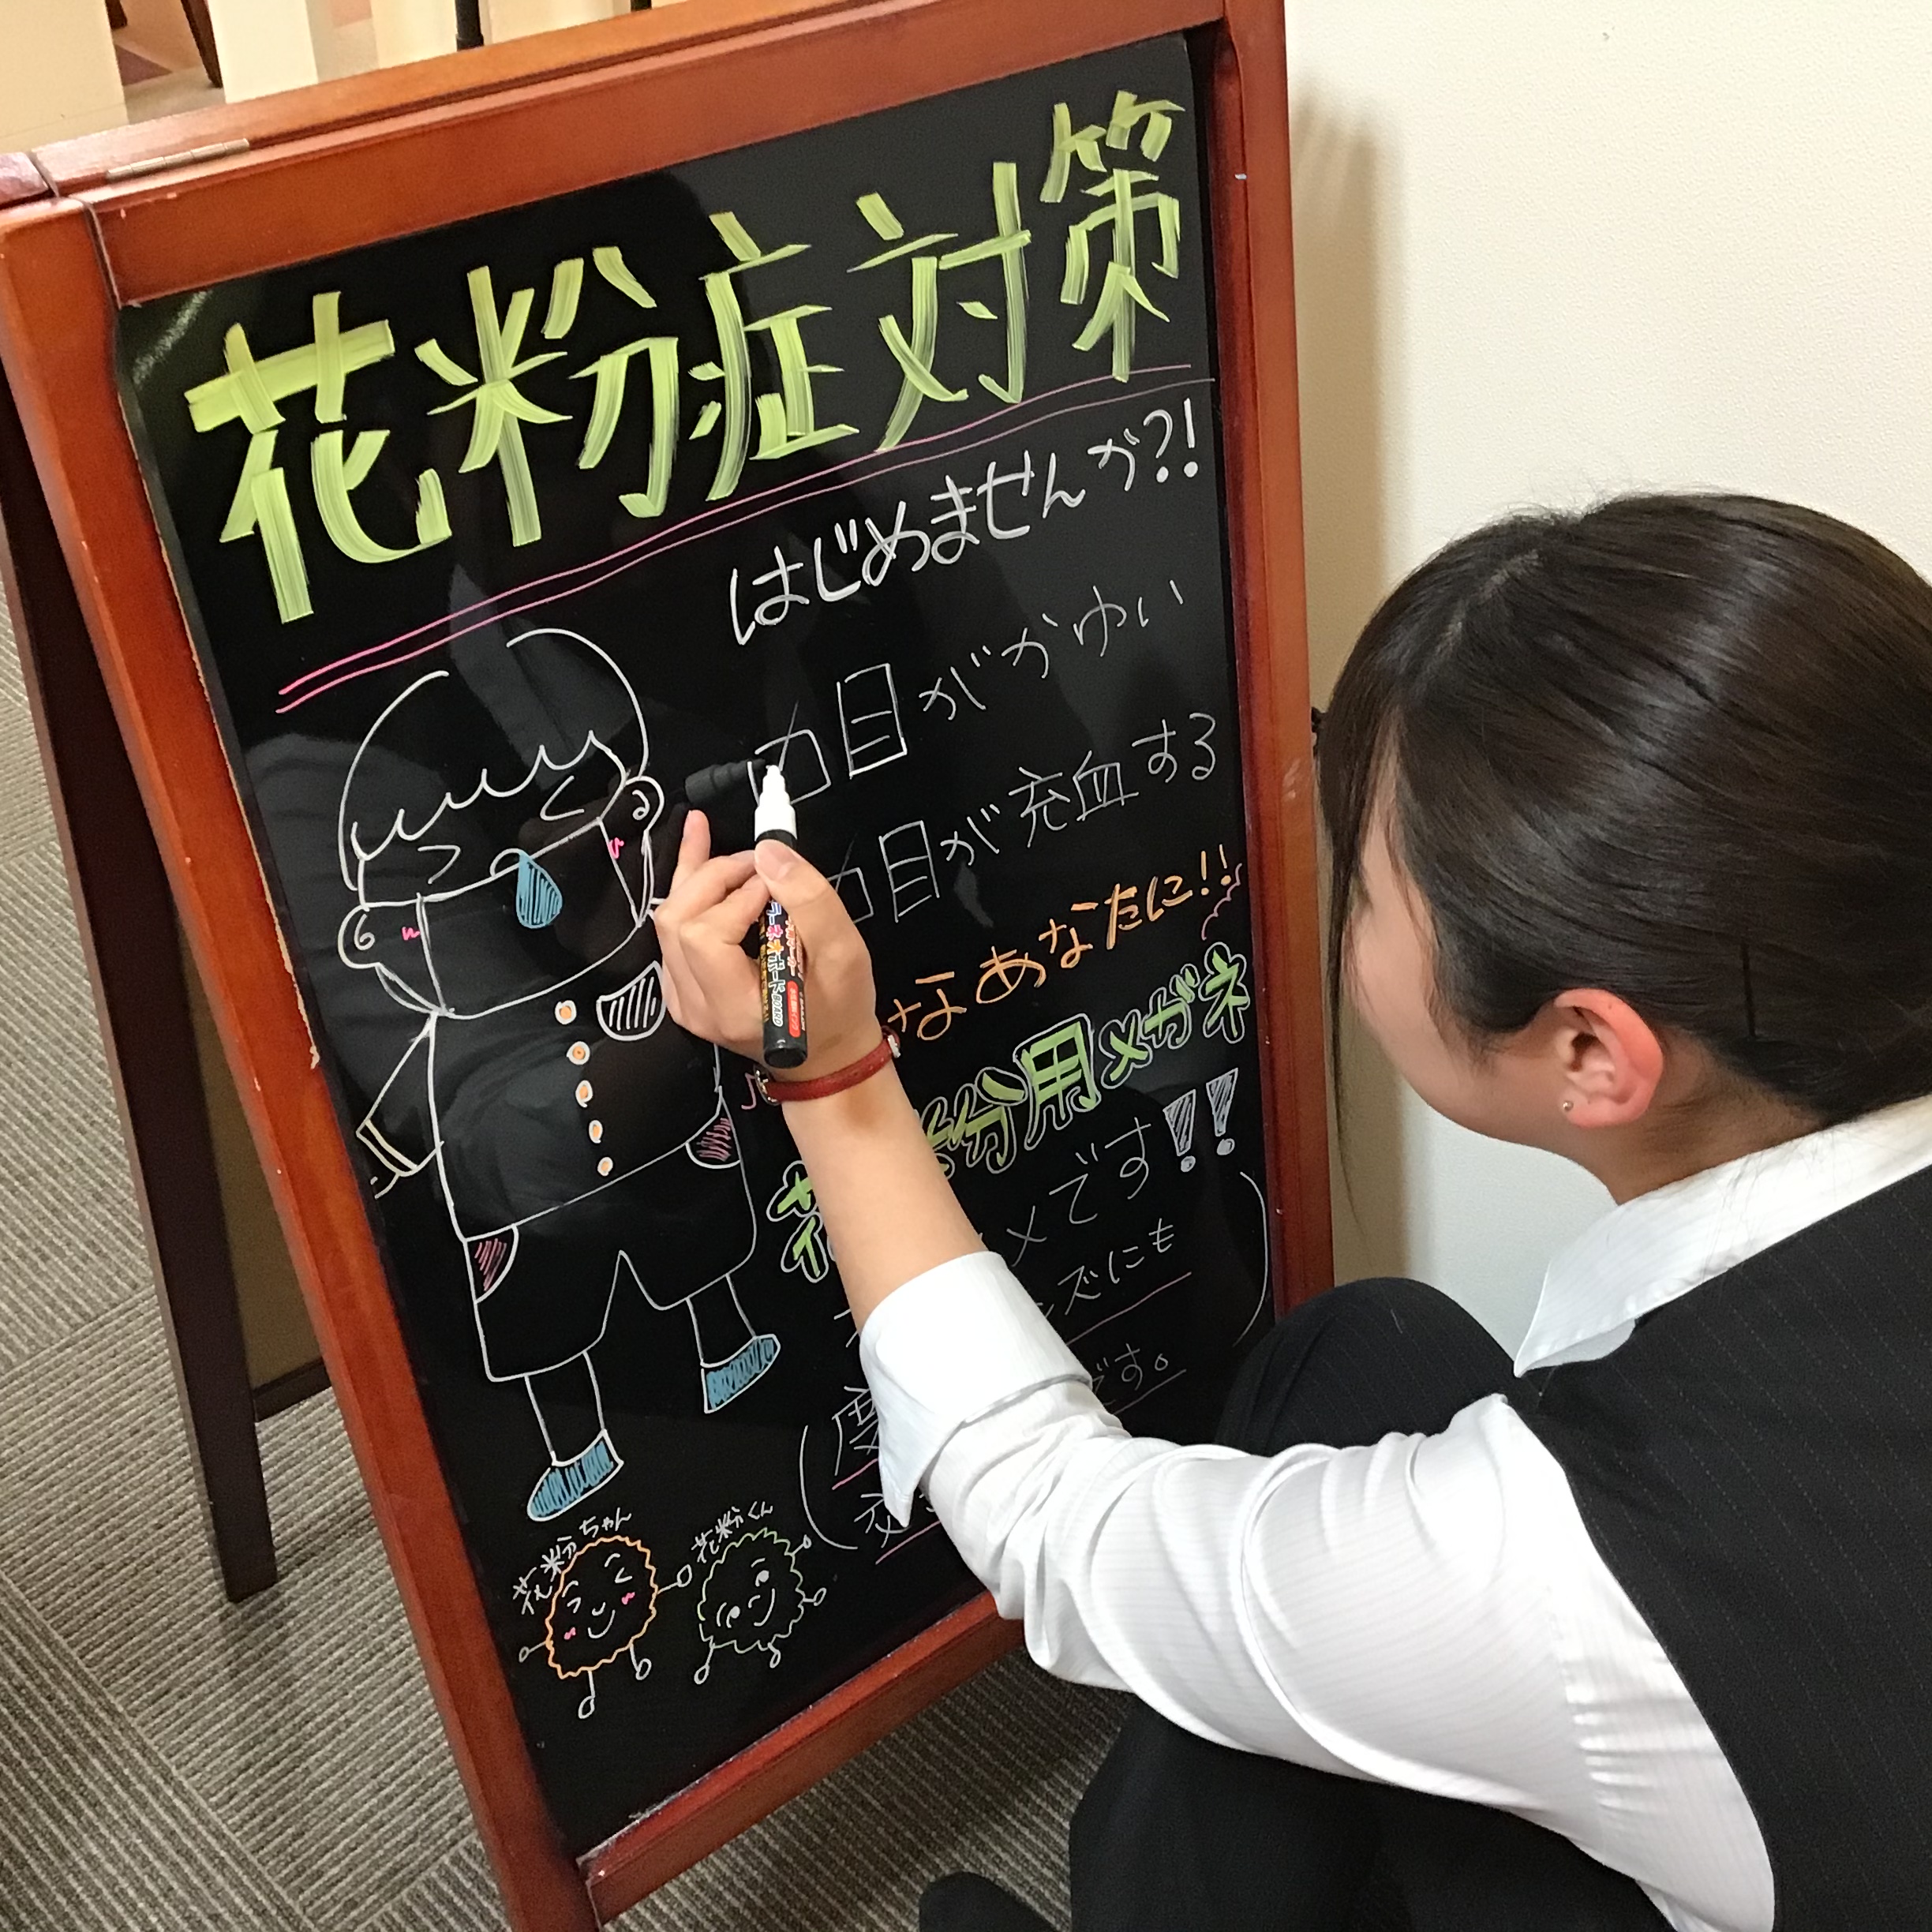 花粉症対策
はじめませんか?!
目がかゆい
目が充血する
なあなたに!!
花粉用メガネ
メです!!
ズにも
度
です。
交
花粉ちゃん
花粉くん
ボード
BOARD